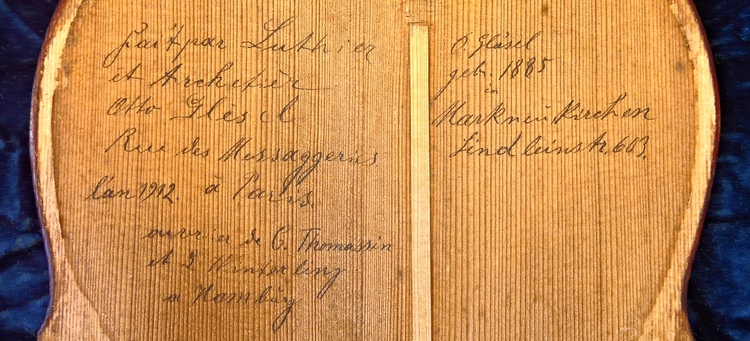 fait par Luthier
et Archetièr
Otto Glèsel
Rue des Messaggeries
l'an 1912. à Paris.
ouvrier de C. Thomassin
et J Winterling
a Hambùrg
O. Gläsel
geb. 1885
in
Markneukirchen
Lindleinstr. 603.